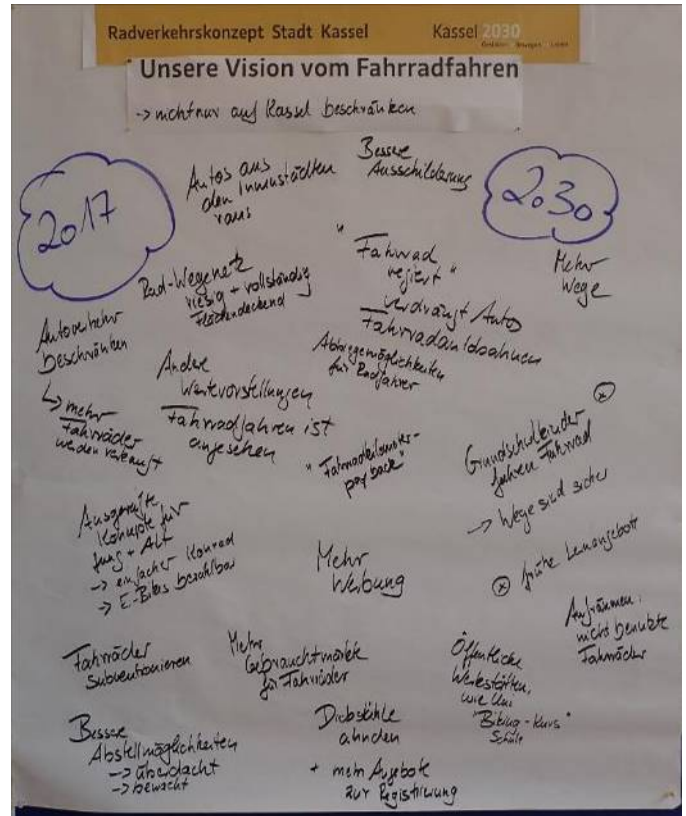 Radverkehrskonzept Stadt Kassel
Kassel 2030
Unsere Vision vom Fahrradfahren
-> nicht nur auf Kassel beschränken
2017
Autos aus
den Innenstädten
raus
Bessere
Ausschilderung
2030
Rad-Wegenetz
riesig + vollständig
flächendeckend
"Fahrrad
regiert"
verdrängt Auto
Fahrradautobahnen
Mehr
Wege
Autoverkehr
beschränken
↳ mehr
Fahrräder
werden verkauft
Andere
Wertevorstellungen
Fahrradfahren ist
angesehen
Abbiegemöglichkeiten
für Radfahrer
"Fahrradkilometer-
payback"
Grundschulkinder ⊗
fahren Fahrrad
-> Wege sind sicher
Ausgereifte
Konzepte für
Jung + Alt
-> einfacher Konrad
-> E-Bikes bezahlbar
Mehr
Werbung
⊗ frühe Lernangebote
Aufräumen:
nicht benutzte
Fahrräder
Fahrräder
subventionieren
Mehr
Gebrauchtmärkte
für Fahrräder
Öffentliche
Werkstätten,
wie Uni
"Biking-Kurs"
Schule
Bessere
Abstellmöglichkeiten
-> überdacht
-> bewacht
Diebstähle
ahnden
+ mehr Angebote
zur Registrierung